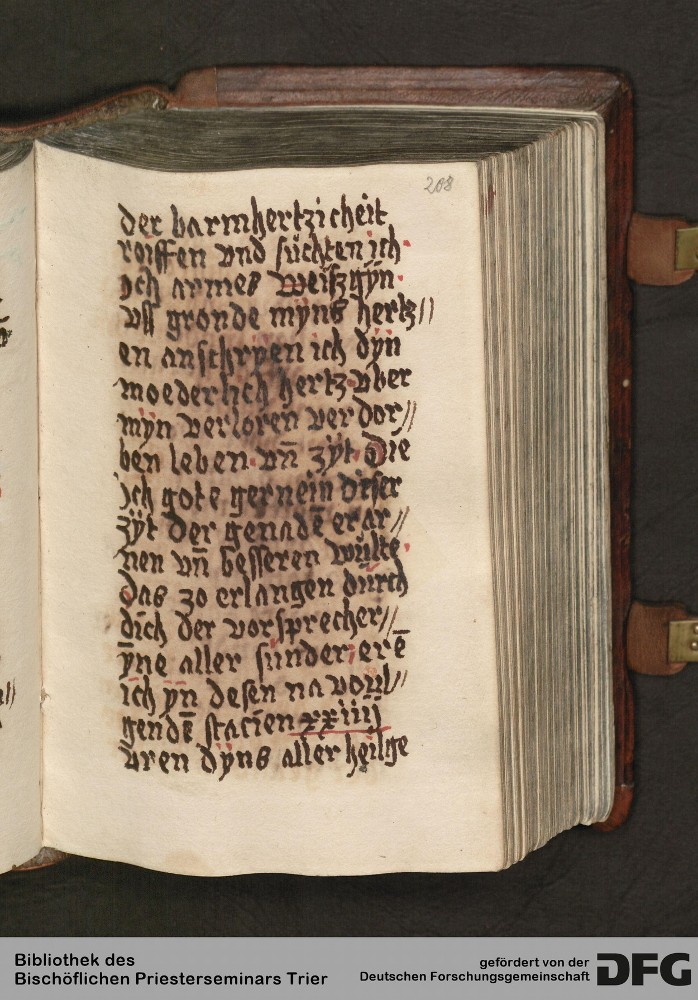 208
der barmhertzicheit
roiffen vnd suchten ich
ich armes weiszgÿn
vss gronde mÿns hertz//
en anschrÿen ich dÿn
moederlich hertz vber
mÿn verloren verdor//
ben leben vn̄ zÿt Die
ich gote gern ein diser
zÿt der genadē erar//
nen vn̄ besseren wulte
das zo erlangen durch
dich der vorsprecher//
ÿne aller sunder erē
ich ÿn desen na voul//
gendē stacien xxiiij
uren dÿns aller heilge
Bibliothek des
Bischöflichen Priesterseminars Trier
gefördert von der
Deutschen Forschungsgemeinschaft DFG